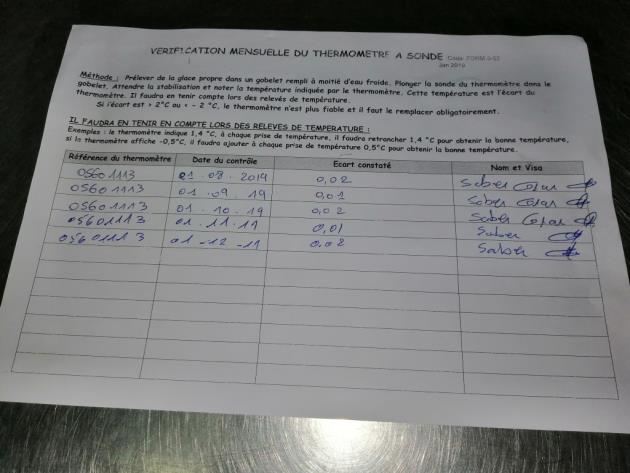 VERIFICATION MENSUELLE DU THERMOMETRE A SONDE Code: FORM 0-53
Jan 2019
Méthode : Prélever de la glace propre dans un gobelet rempli à moitié d'eau froide. Plonger la sonde du thermomètre dans le
gobelet. Attendre la stabilisation et noter la température indiquée par le thermomètre. Cette température est l'écart du
thermomètre. Il faudra en tenir compte lors des relevés de température.
Si l'écart est > 2°C ou < - 2 °C, le thermomètre n'est plus fiable et il faut le remplacer obligatoirement.
IL FAUDRA EN TENIR EN COMPTE LORS DES RELEVES DE TEMPERATURE :
Exemples : le thermomètre indique 1,4 °C, à chaque prise de température, il faudra retrancher 1,4 °C pour obtenir la bonne température,
si le thermomètre affiche -0,5°C, il faudra ajouter à chaque prise de température 0,5°C pour obtenir la bonne température.
Référence du thermomètre Date du contrôle Ecart constaté Nom et Visa
05601113 01.08.2019 0,02 Saber
05601113 01.09.19 0,01 Saber
05601113 01.10.19 0,02 Saber
05601113 01.11.19 0,01 Saber
05601113 01-12-19 0,02 Saber